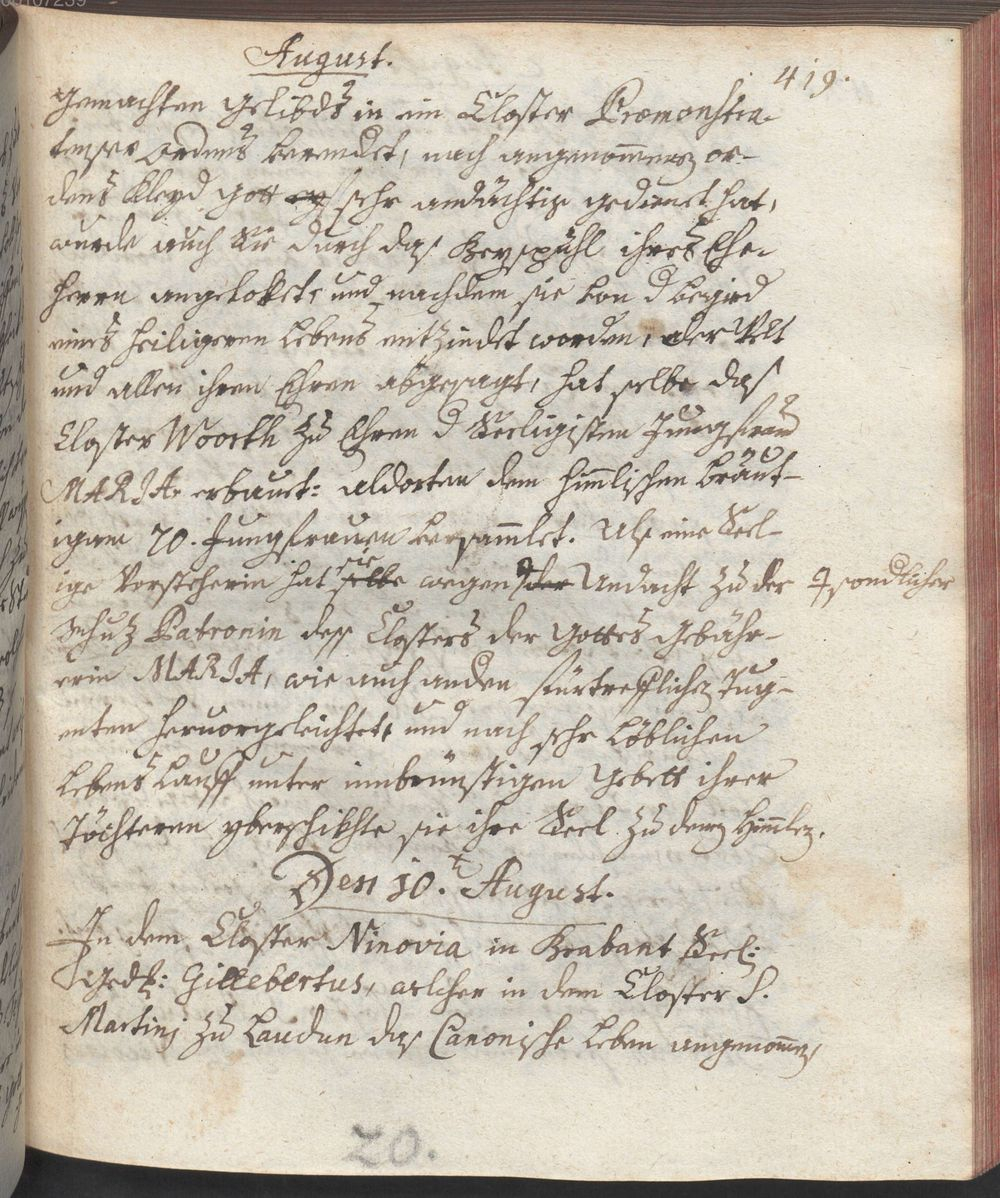 00107239
August.
419.
gemachten Gelibds in ein Closter Præmonstra-
tenser Ordens berendet, nach angenommenen or-
dens Kleyd Gott sehr andächtig gedienet hat,
wurde auch Sie durch das Beyspühl ihres Ehe-
herrn angeloket, und nachdem sie von d Begird
eines heiligeren Lebens entzindet worden, der Welt
und allen ihren Ehren abgesagt, hat selbe das
Closter Woorth zu Ehren d Seeligisten Jungfrau
MARIA erbauet: aldorten dem himlischen Bräut-
igam 70. Jungfrauen versammlet. Als eine Seel-
ige Vorsteherin hat sie selbe wegen der Andacht zu der
sondlicher
Schutz Patronin dess Closters der Gottes Gebähr-
erin MARIA, wie auch anden fürtrefflichen Tug-
enten hervorgeleichtet, und nach sehr Löblichen
Lebens Lauff unter innbrünstigen Gebett ihrer
Töchteren yberschikhte sie ihre Seel zu dem Himlen.
Den 10.t August.
In dem Closter Ninovia in Brabant Seel:
Gedh: Gillebertus, welcher in dem Closter S.
Martinj zu Laudun das Canonische Leben angenommen
20.